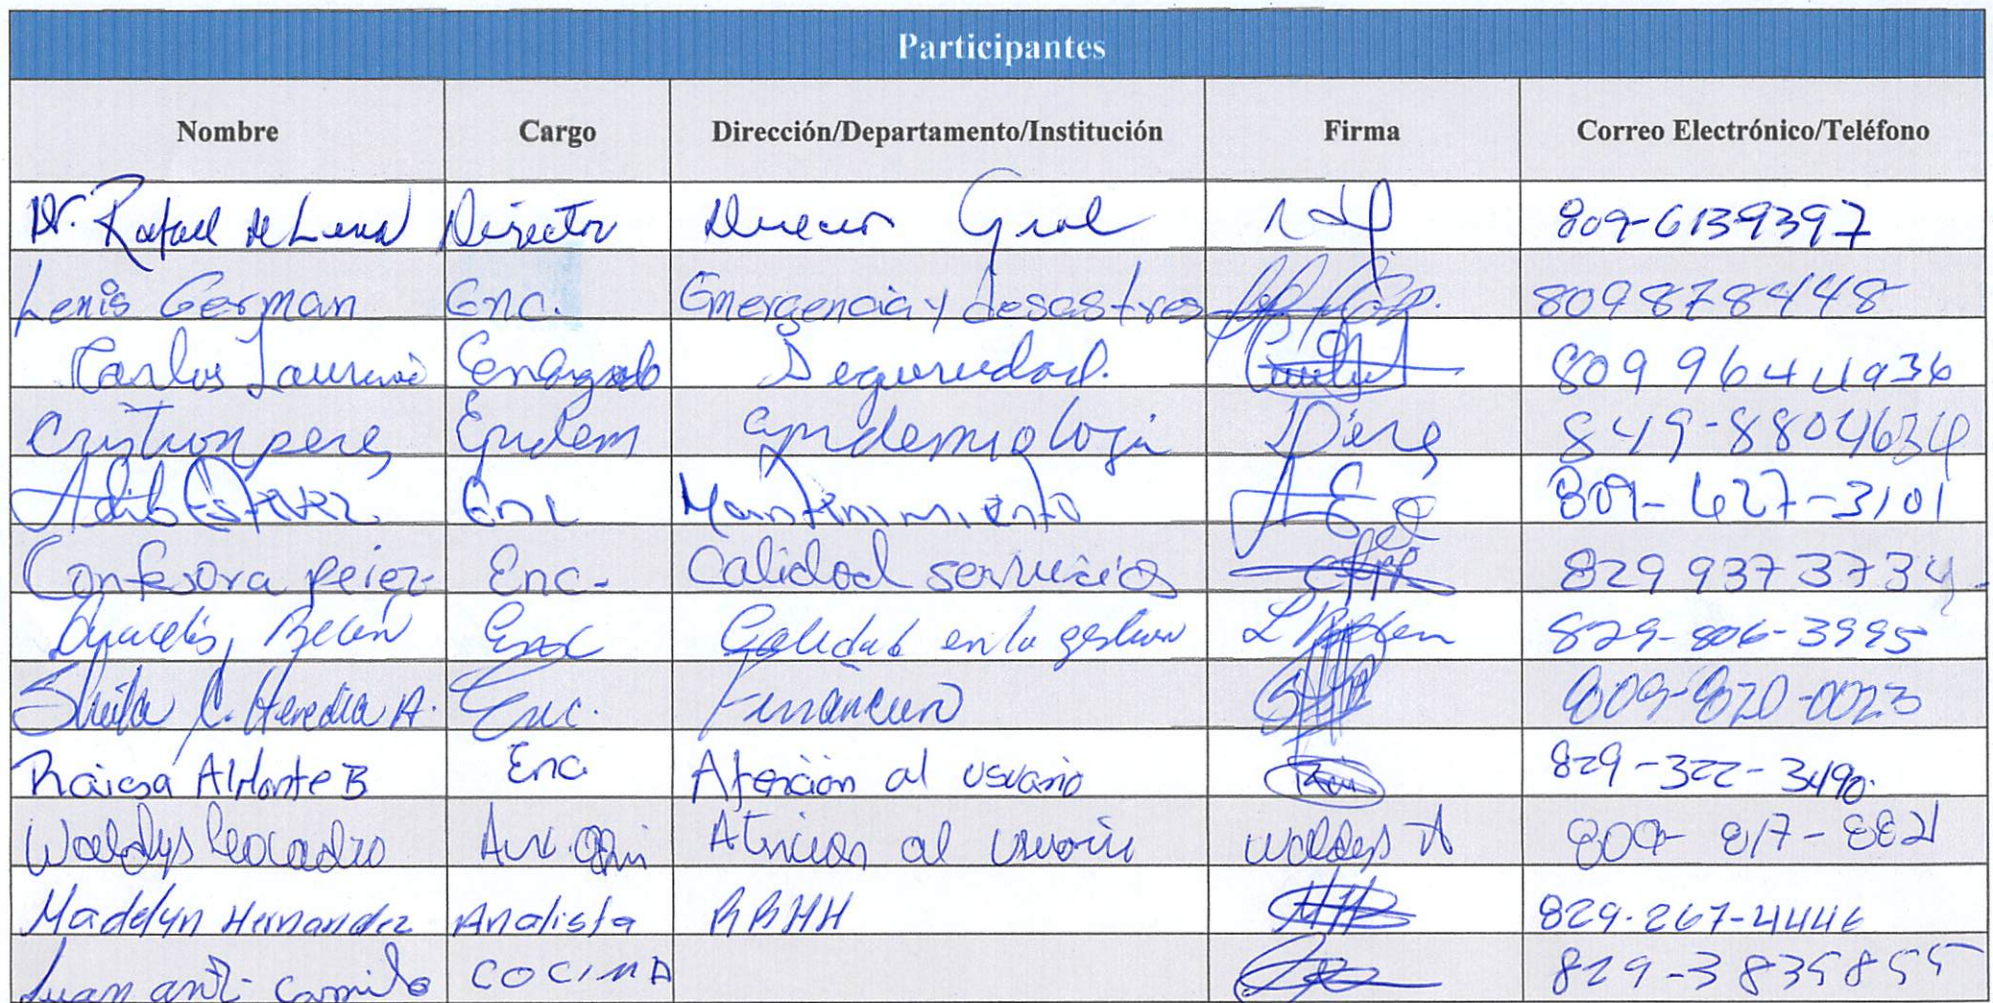 Participantes
Nombre Cargo Dirección/Departamento/Institución Firma Correo Electrónico/Teléfono
Dr. Rafael de Luna Director Gral 809-6139397
Lenis German Enc. Emergencia y desastres 8098784448
Carlos Encargado Seguridad. 809 964 4936
Epidem Epidemiologi 849-8804634
Enc Mantenimiento 809-627-3101
Confesora perez Enc- Calidad servicios 829 937 3734
Belén Enc Calidad en la gestion 829-806-3995
Sheila C. Heredia A. Enc. Financiero 809-820-0023
Raisa Almonte B Enc. Atención al usuario 829-322-3490.
Waldys Leocadio Aux. Atencion al usuario Waldys 809-817-8821
Madelyn Hernandez Analista RRHH 829-267-4446
Juan ant. Camilo COCINA 829-3835855